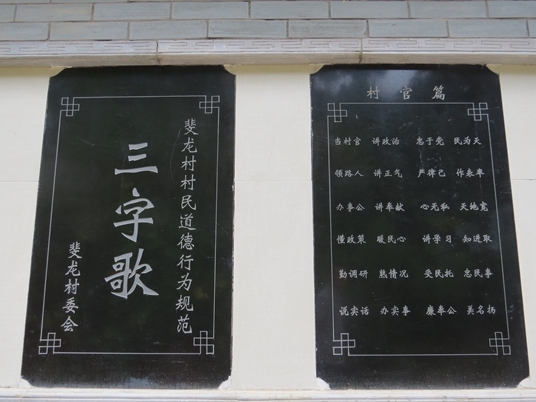 斐龙村村民道德行为规范
三字歌
斐龙村委会
村官篇
当村官 讲政治 忠于党 民为天
领路人 讲正气 严律己 作表率
办事公 讲奉献 心无私 天地宽
懂政策 暖民心 讲学习 知进取
勤调研 熟情况 受民托 忠民事
说实话 办实事 廉奉公 美名扬